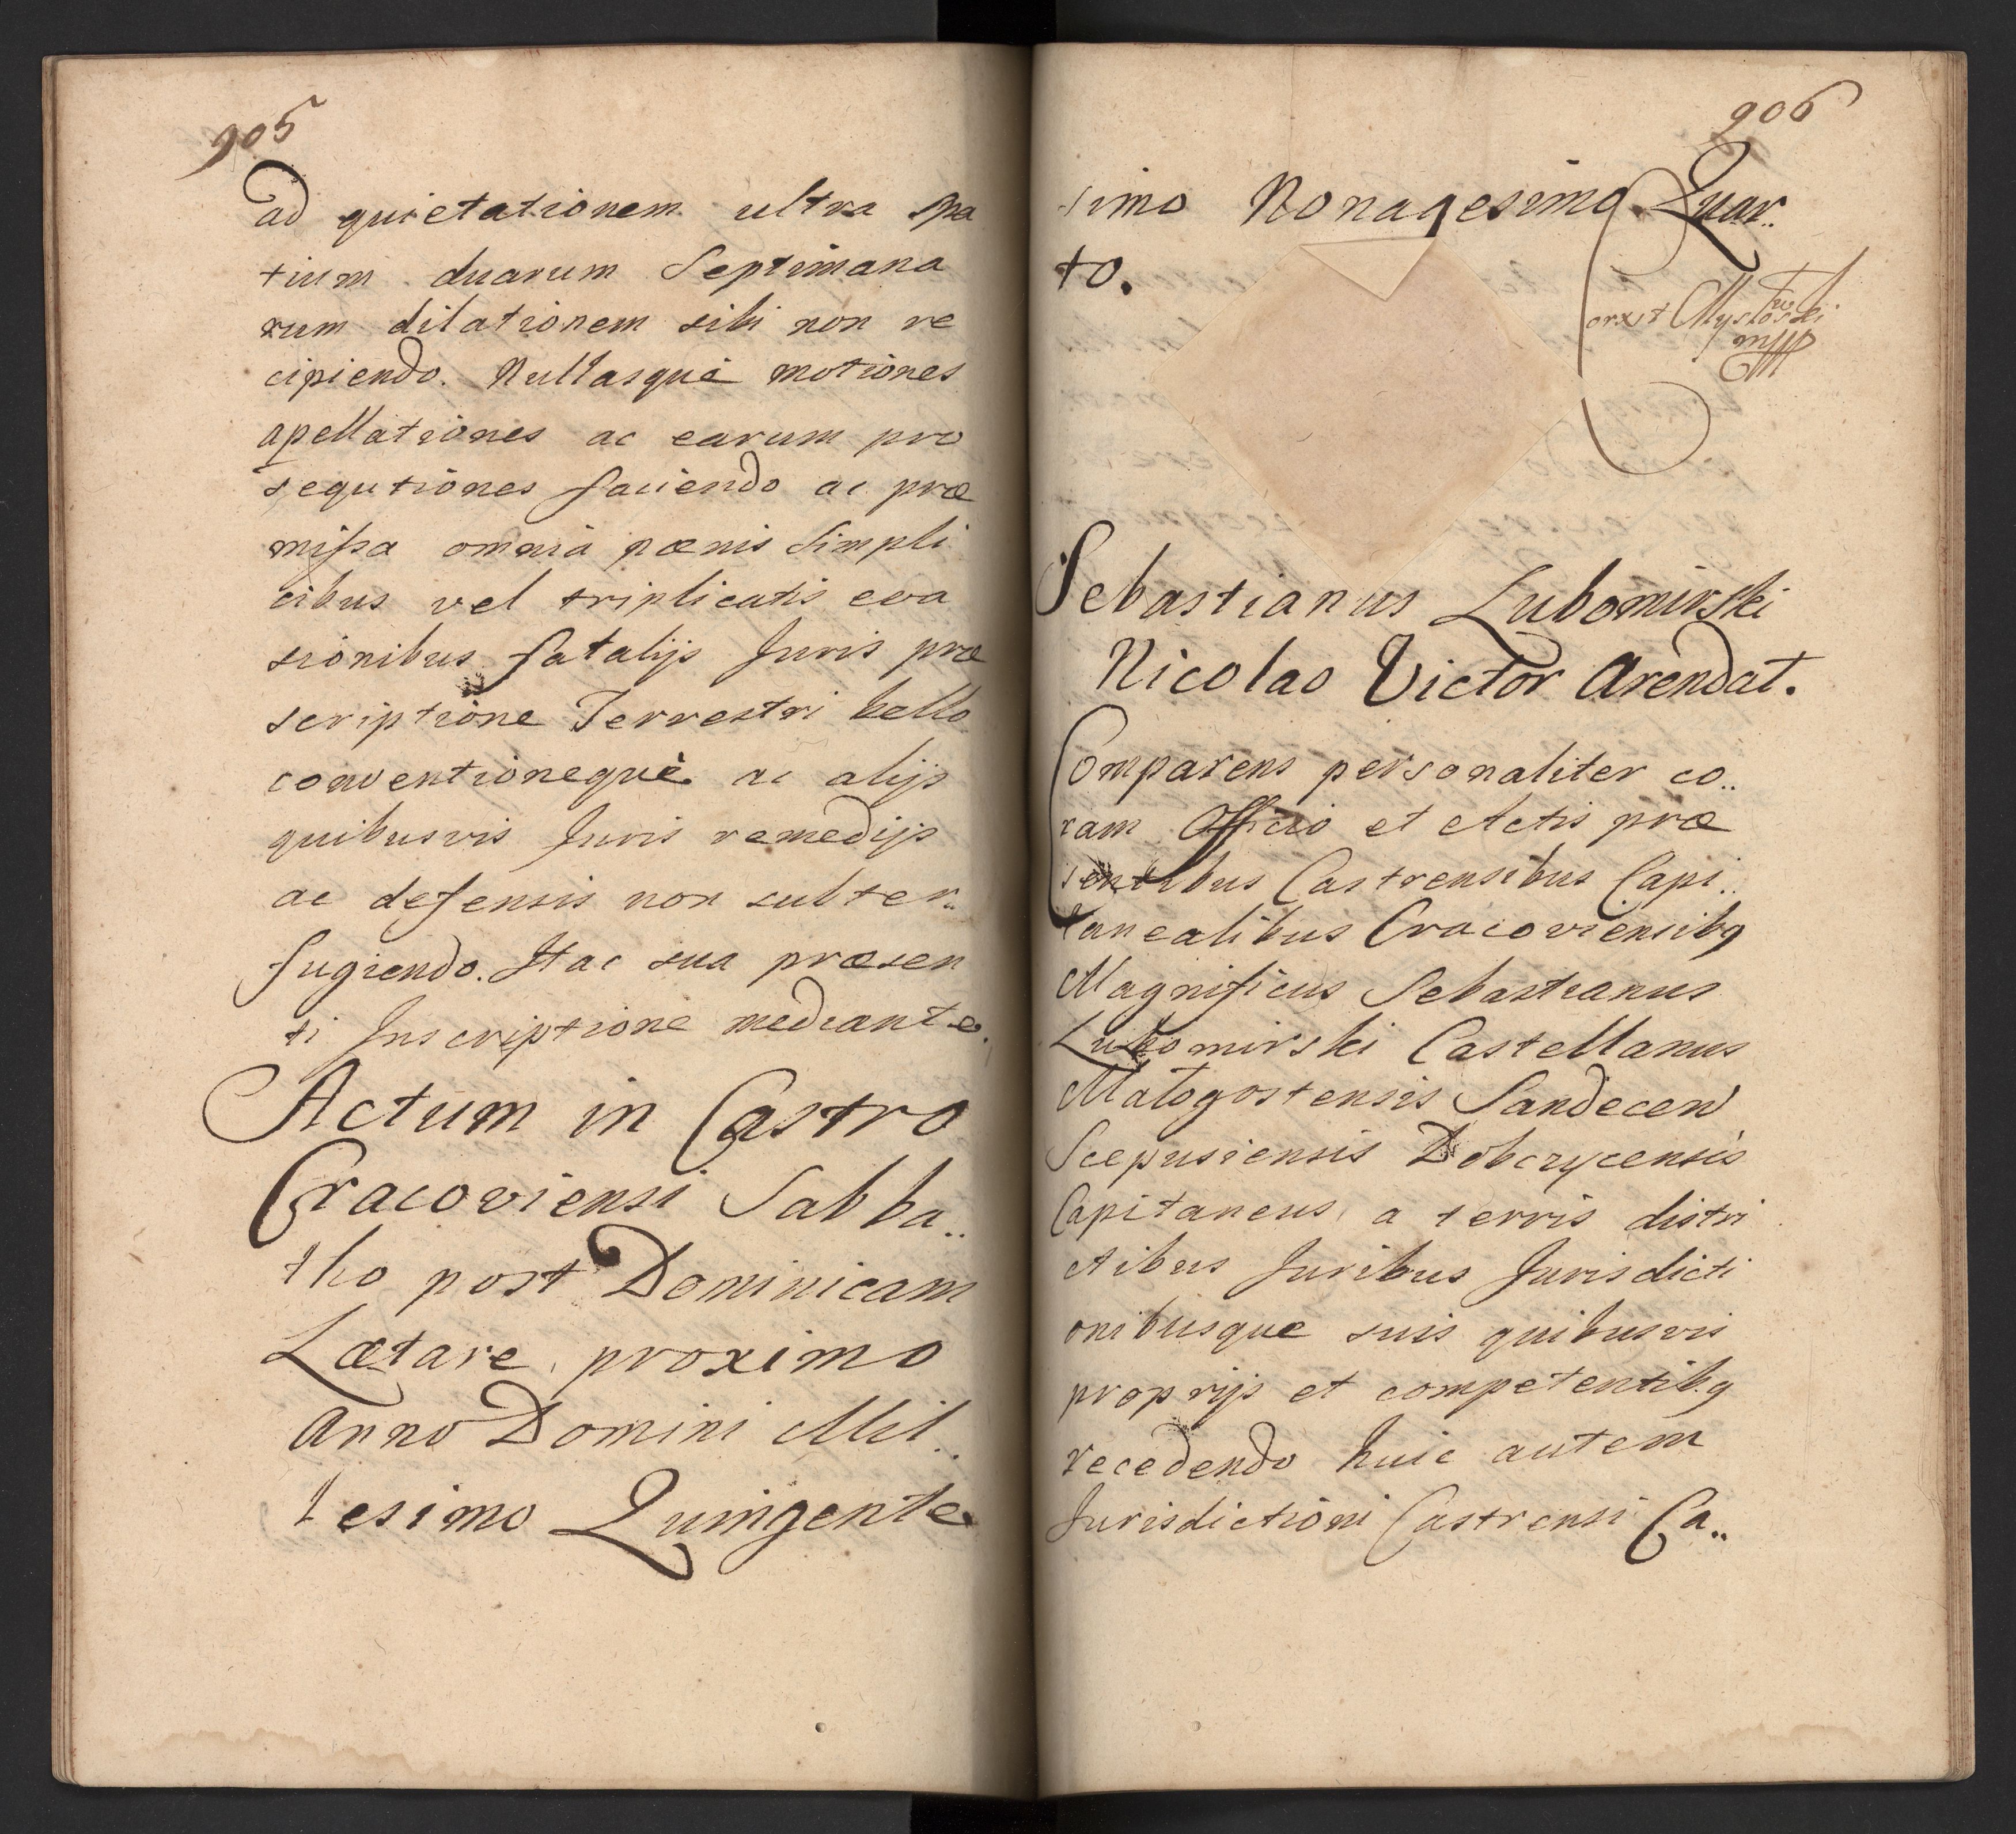 905
ad quietationem ultra spa
tium duarum Septimana
rum dilationem sibi non re
cipiendo. Nullasque motiones
apellationes ac earum pro
sequtiones faciendo ac præ
missa omnia pœnis simpli
cibus vel triplicatis eva
sionibus fatalijs Juris præ
scriptione Terrestri bello
conventioneque ac alijs
quibusvis Juris remedijs
ac defensis non subter..
fugiendo. Hac sua præsen
ti Inscriptione mediante.
Actum in Castro
Cracoviensi Sabba..
tho post Dominicam
Lætare proximo
Anno Domini Mil..
lesimo Quingente
906
simo Nonagesimo Quar..
to.
Sebastianus Lubomirski
Nicolao Victor Arendat.
Comparens personaliter co..
ram Officio et Actis præ
sentibus Castrensibus Capi..
tanealibus Cracoviensibq
Magnificus Sebastianus
Lubomirski Castellanus
Małogostensis Sandecen
Scepusiensis Dobczycensis
Capitaneus a terris distri
ctibus Juribus Jurisdicti
onibusque suis quibusvis
proprijs et competentibq
recedendo huic autem
Jurisdictioni Castrensi Ca..